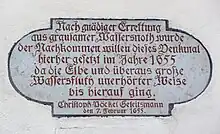 Nach gnädiger Errettung
aus grausamer Wassersnoth wurde
der Nachkommen willen dieses Denkmal
hierher gesetzt im Jahre 1655
da die Elbe und überaus große
Wasserfluth unerhörter Weise
bis hierauf ging.
Christoph Böckel
den 7. Februar 1655.